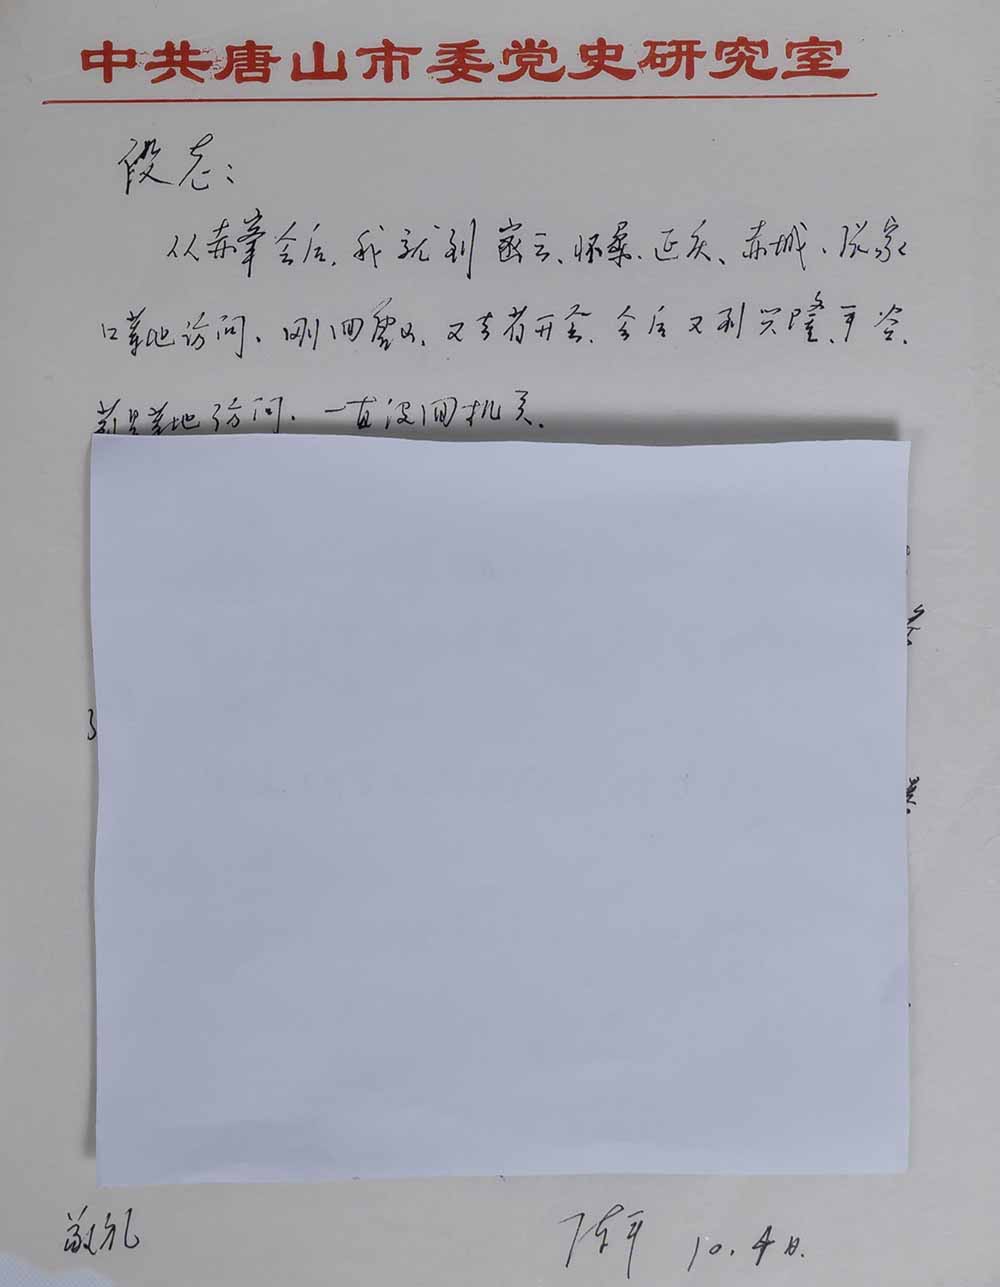 中共唐山市委党史研究室
段志:
从赤峰会后,我就到密云、怀柔、延庆、赤城、张家
口等地访问。刚回唐山,又去省开会,会后又到兴隆、平谷、
蓟县等地访问,一直没回机关。
了
敬礼
陈平 10.4日.